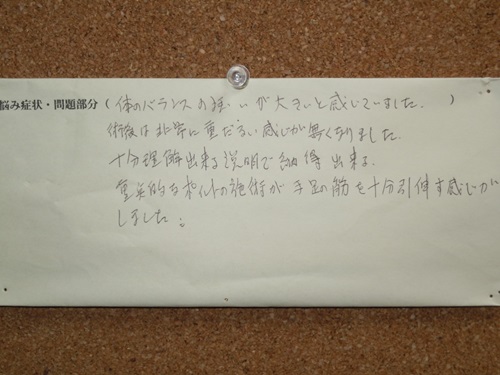 悩み症状・問題部分（体のバランスの違いが大きいと感じていました。）
術後は非常に重だるい感じが無くなりました。
十分理解出来る説明で納得出来る。
重点的なポイントの施術が手足の筋を十分引伸す感じが
しました。